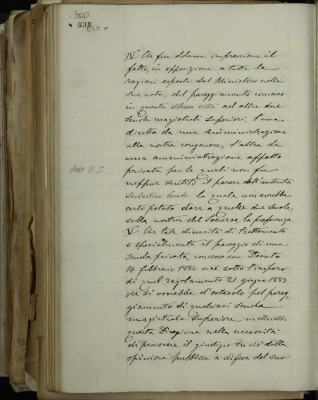 530
IV Che fece dolorosa impressione il
fatto, in opposizione a tutte le
ragioni esposte dal Ministero nella
sua nota, del pareggiamento concesso
in questa stessa città ad altre due
scuole magistrali superiori, l'una
diretta da una amministrazione
alla nostra congenere, l'altra da
una amministrazione affatto
privata per le quali non fu
neppur sentito il parere dell'autorità
scolastica locale la quale non avrebbe
certo potuto dare a quelle due scuole,
sulla nostra del Soccorso, la preferenza
V Che tale diversità di trattamento
e specialmente il pareggio di una
scuola privata, concesso con Decreto
14 febbraio 1884 cioè sotto l'impero
di quel regolamento 21 giugno 1883
che si vorrebbe d'ostacolo pel pareg-
giamento di qualsiasi scuola
magistrale superiore, metterebbe
questa Direzione nella necessità
di provocare il giudizio su ciò della
opinione pubblica a difesa del suo